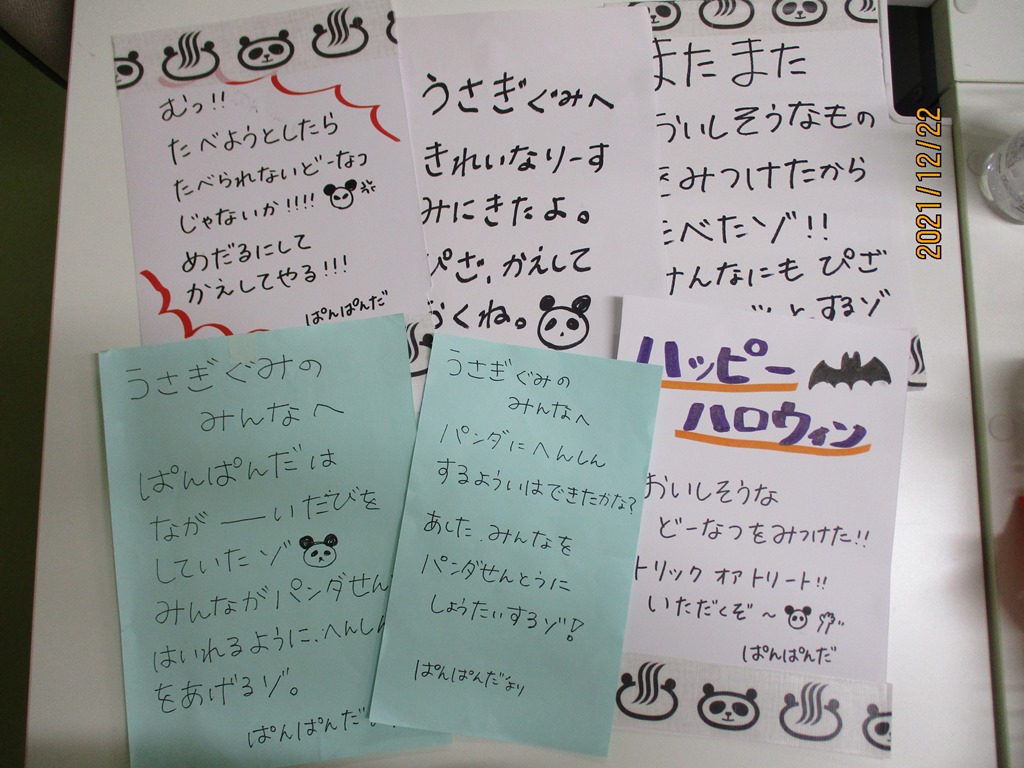 むっ!!
たべようとしたら
たべられないどーなつ
じゃないか!!!!
めだるにして
かえしてやる!!!
ぱんぱんだ
うさぎぐみへ
きれいなりーす
みにきたよ。
ぴざ、かえして
おくね。
またまた
おいしそうなもの
をみつけたから
たべたゾ!!
けんなにも ぴざ
するゾ
2021/12/22
うさぎぐみの
みんなへ
ぱんぱんだは
ながーーいたびを
していたゾ
みんながパンダせん
はいれるように、へんしん
をあげるゾ。
ぱんぱんだ
うさぎぐみの
みんなへ
パンダにへんしん
するよういはできたかな?
あした、みんなを
パンダせんとうに
しょうたいするゾ!
ぱんぱんだより
ハッピー
ハロウィン
おいしそうな
どーなつをみつけた!!
トリック オア トリート!!
いただくぞ～
ぱんぱんだ